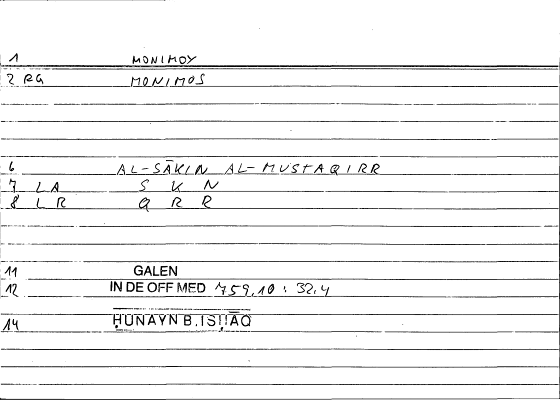 1 MONIMOY
2 RG MONIMOS
6 AL-SĀKIN AL-MUSTAQIRR
7 LA S K N
8 LR Q R R
11 GALEN
12 IN DE OFF MED 759,10 : 32,4
14 ḤUNAYN B. ISḤĀQ